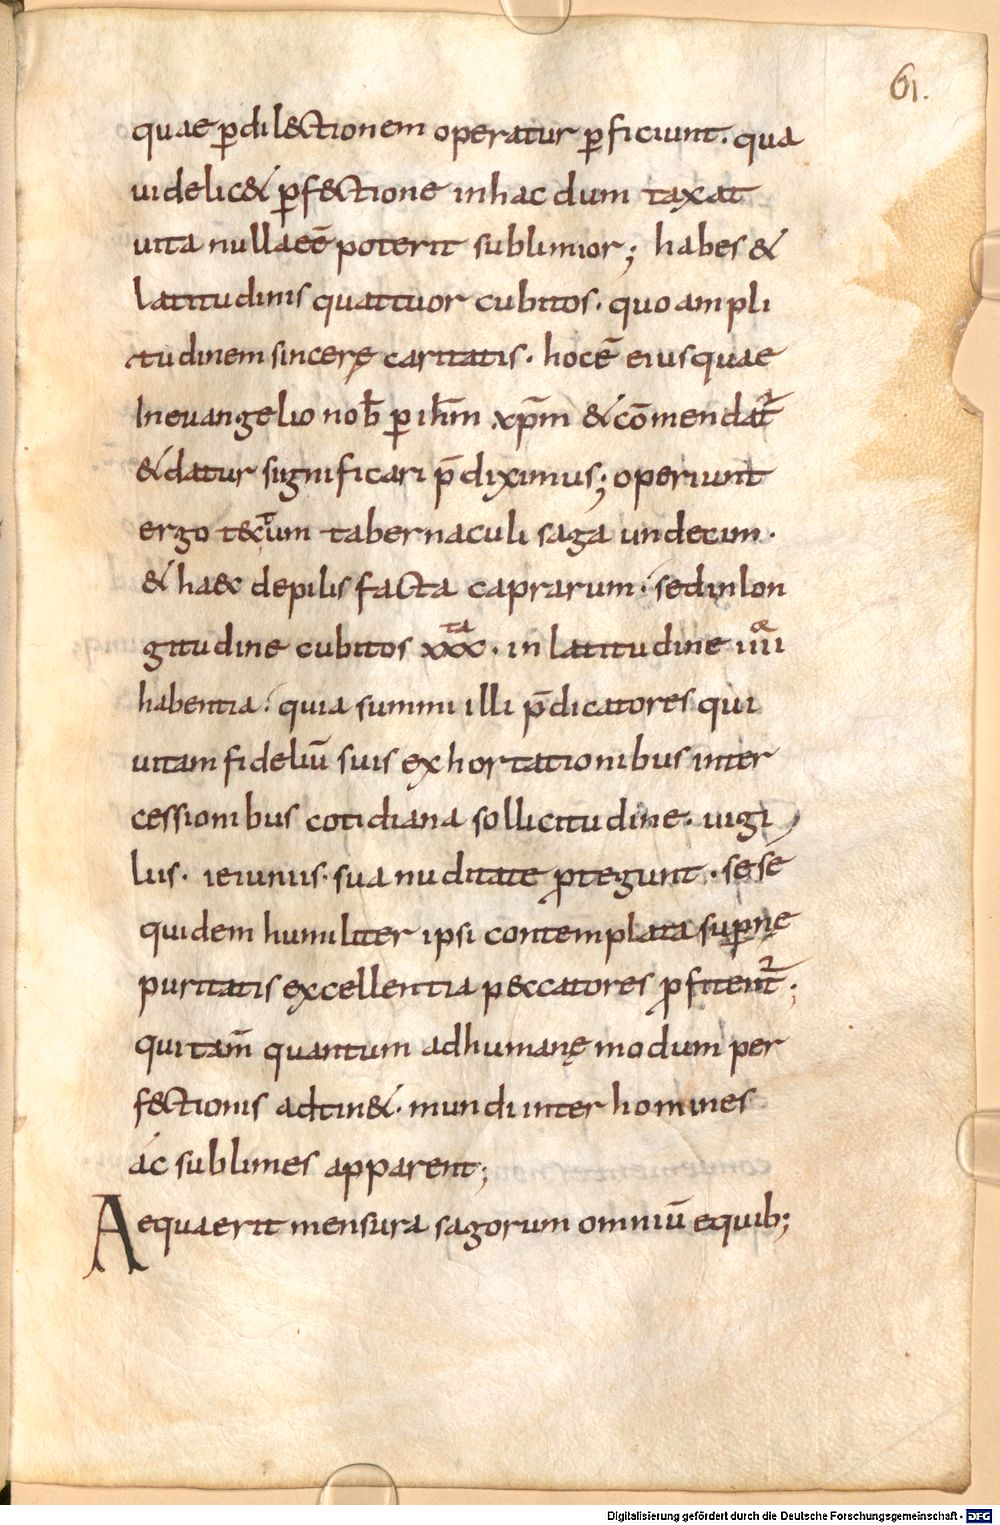 61.
quae ꝑdilectionem operatur ꝑficiunt. qua
uidelic& ꝑfectione inhac dum taxat
uita nullaeē poterit sublimior; habes &
latitudinis quattuor cubitos. quo ampli
tudinem sincerę caritatis. hocē eiusquae
Ineuangelio nob̄ ꝑ ih̄m xp̄m & cōmendat̄²
&datur significari p̄diximus; operiunt
ergo tectum tabernaculi saga undecim.
& haec depilis facta caprarum. sedinlon
gitudine cubitos xxx^ta. in latitudine iiii
habentia. quia summi illi p̄dicatores qui
uitam fideliū suis exhortationibus inter
cessionibus cotidiana sollicitudine. uigi
liis. ieiuniis. sua nuditate ꝓtegunt. sese
quidem humiliter ipsi contemplata suꝑnę
puritatis excellentia peccatores ꝓfitent̄²;
qui tam̄ quantum adhumanę modum per
fectionis adtin&. mundi inter homines
ác sublimes apparent;
Aequaerit mensura sagorum omniū equib;
Digitalisierung gefördert durch die Deutsche Forschungsgemeinschaft - DFG